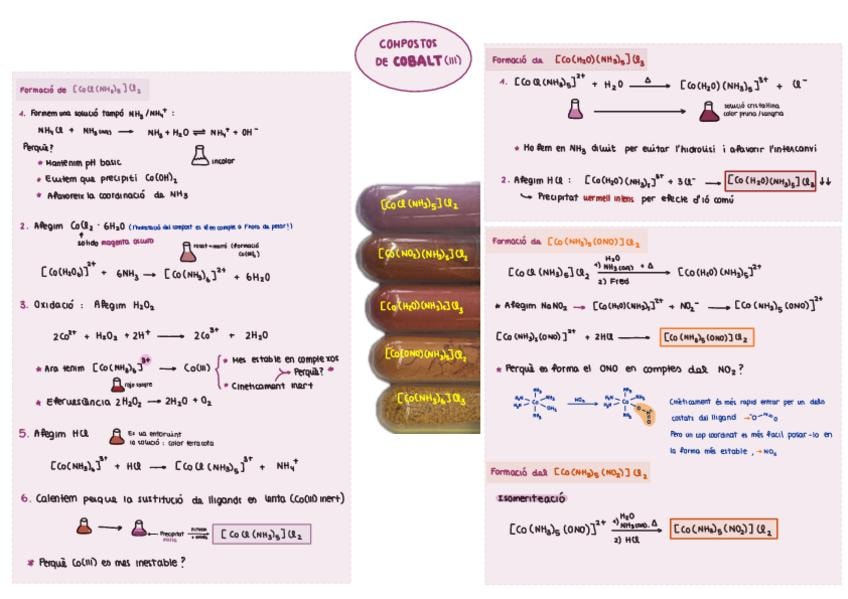 COMPOSTOS
DE COBALT (III)
Formació de [CoCl(NH₃)₅]Cl₂
1. Formem una solució tampó NH₃/NH₄⁺ :
NH₄Cl + NH₃(aq) ⟶ NH₃ + H₂O ⇌ NH₄⁺ + OH⁻
Perquè?
incolor
* Mantenim pH basic
* Evitem que precipiti Co(OH)₂
* Afavoreix la coordinació de NH₃
2. Afegim CoCl₂ · 6H₂O
sólido magenta oscuro
[Co(H₂O)₆]²⁺ + 6NH₃ ⟶ [Co(NH₃)₆]²⁺ + 6H₂O
3. Oxidació : Afegim H₂O₂
2Co²⁺ + H₂O₂ + 2H⁺ ⟶ 2Co³⁺ + 2H₂O
* Ara tenim [Co(NH₃)₆]³⁺ ⟶ Co(III)
* Mes estable en complexos
Perquè? *
* Cinèticament inert
rojo sangre
* Efervescència 2H₂O₂ ⟶ 2H₂O + O₂
5. Afegim HCl
Es va enfosquint
la solució : color terracota
[Co(NH₃)₆]³⁺ + HCl ⟶ [CoCl(NH₃)₅]³⁺ + NH₄⁺
6. Calentem perque la sustitució de lligands es lenta (Co(III) inert)
Precipitat
[CoCl(NH₃)₅]Cl₂
* Perquè Co(III) es mes inestable ?
[CoCl(NH₃)₅]Cl₂
[Co(NO₂)(NH₃)₅]Cl₂
[Co(H₂O)(NH₃)₅]Cl₃
[Co(ONO)(NH₃)₅]Cl₂
[Co(NH₃)₆]Cl₃
Formació de [Co(H₂O)(NH₃)₅]Cl₃
1. [CoCl(NH₃)₅]²⁺ + H₂O ⟶ Δ [Co(H₂O)(NH₃)₅]³⁺ + Cl⁻
solució cristal·lina
color pruna/sangria
* Ho fem en NH₃ diluit per evitar l'hidrolisi i afavorir l'intercanvi
2. Afegim HCl : [Co(H₂O)(NH₃)₅]³⁺ + 3Cl⁻ ⟶ [Co(H₂O)(NH₃)₅]Cl₃ ↓↓
Precipitat vermell intens per efecte d'ió comú
Formació de [Co(NH₃)₅(ONO)]Cl₂
H₂O
[CoCl(NH₃)₅]Cl₂ 1) NH₃(aq) + Δ ⟶ [Co(H₂O)(NH₃)₅]²⁺
2) Fred
* Afegim NaNO₂ ⟶ [Co(H₂O)(NH₃)₅]³⁺ + NO₂⁻ ⟶ [Co(NH₃)₅(ONO)]²⁺
[Co(NH₃)₅(ONO)]²⁺ + 2HCl ⟶ [Co(NH₃)₅(ONO)]Cl₂
* Perquè es forma el ONO en comptes del NO₂ ?
Cinèticament és més rapid entrar per un dels
costats del lligand
Pero un cop coordinat es més fàcil posar-lo en
la forma més estable , → NO₂
Formació del [Co(NH₃)₅(NO₂)]Cl₂
Isomerització
H₂O
[Co(NH₃)₅(ONO)]²⁺ 1) NH₃(aq), Δ ⟶ [Co(NH₃)₅(NO₂)]Cl₂
2) HCl